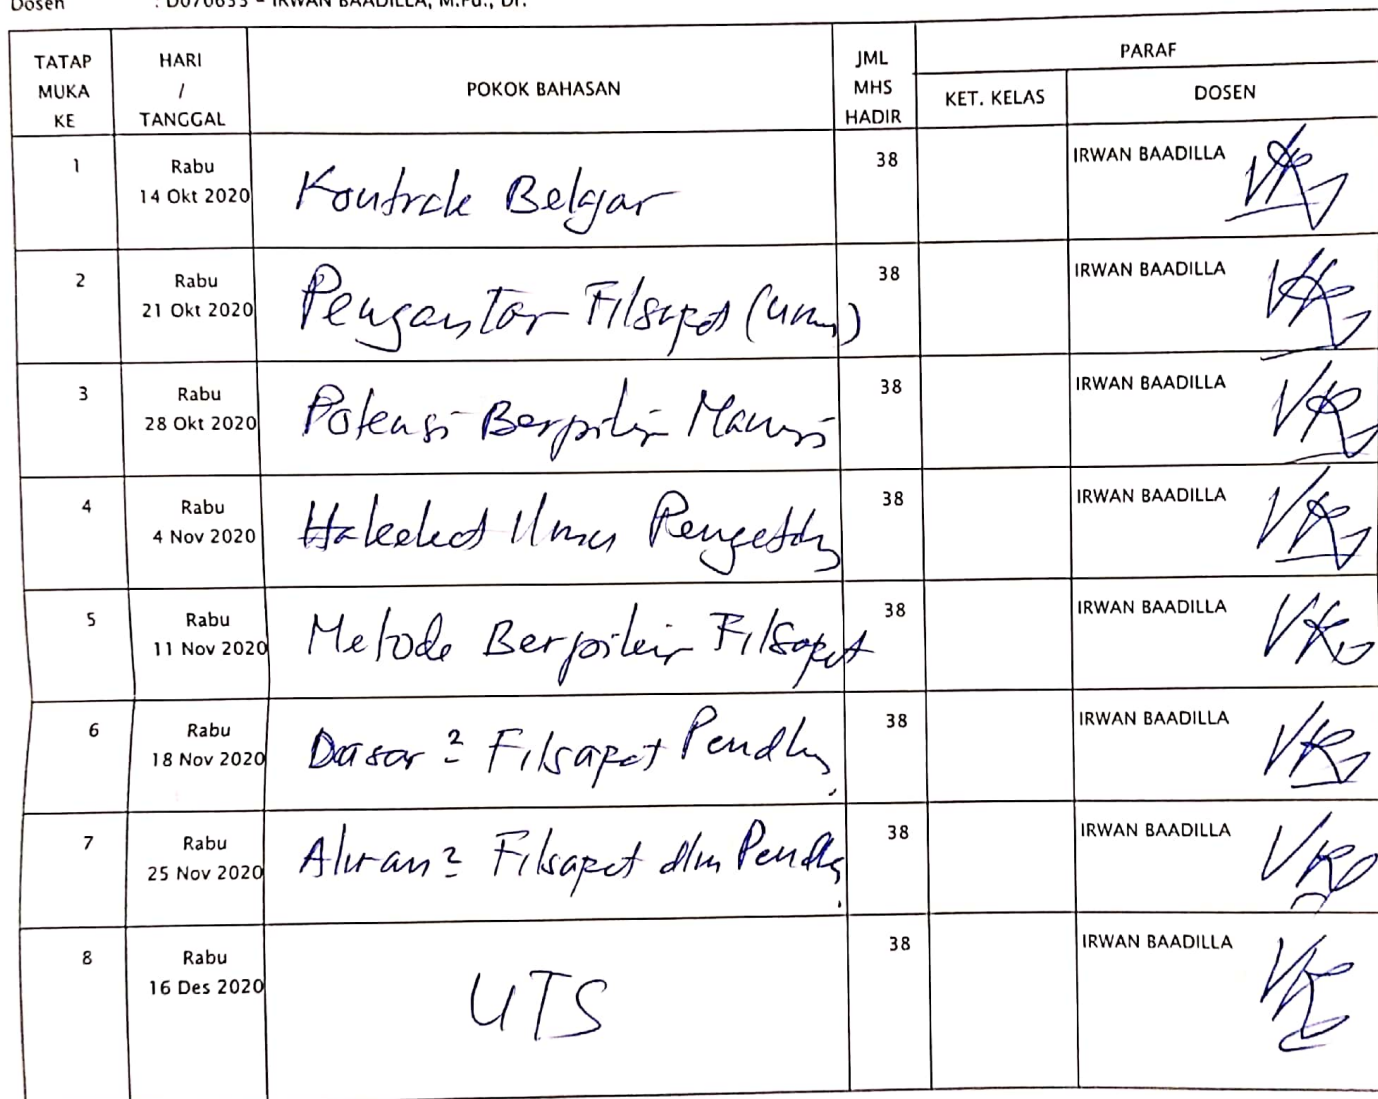 Dosen : D070633 - IRWAN BAADILLA, M.Pd., Dr.
TATAP MUKA KE HARI / TANGGAL POKOK BAHASAN JML MHS HADIR PARAF
KET. KELAS DOSEN
1 Rabu 14 Okt 2020 Kontrak Belajar 38 IRWAN BAADILLA
2 Rabu 21 Okt 2020 Pengantar Filsapat (Umum) 38 IRWAN BAADILLA
3 Rabu 28 Okt 2020 Potensi Berpikir Manusia 38 IRWAN BAADILLA
4 Rabu 4 Nov 2020 Hakekat Ilmu Pengetahuan 38 IRWAN BAADILLA
5 Rabu 11 Nov 2020 Metode Berpikir Filsapat 38 IRWAN BAADILLA
6 Rabu 18 Nov 2020 Dasar2 Filsapat Pendk 38 IRWAN BAADILLA
7 Rabu 25 Nov 2020 Aliran2 Filsapat dlm Pendk 38 IRWAN BAADILLA
8 Rabu 16 Des 2020 UTS 38 IRWAN BAADILLA